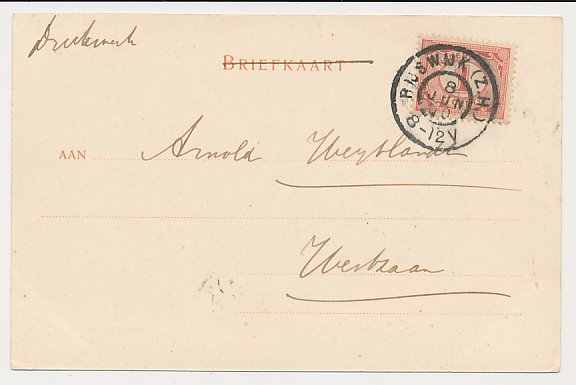 Drukwerk
BRIEFKAART
RIJSWIJK (Z.H.)
8
JUN
8-12V
AAN Arnold Weyblandt
Westzaan